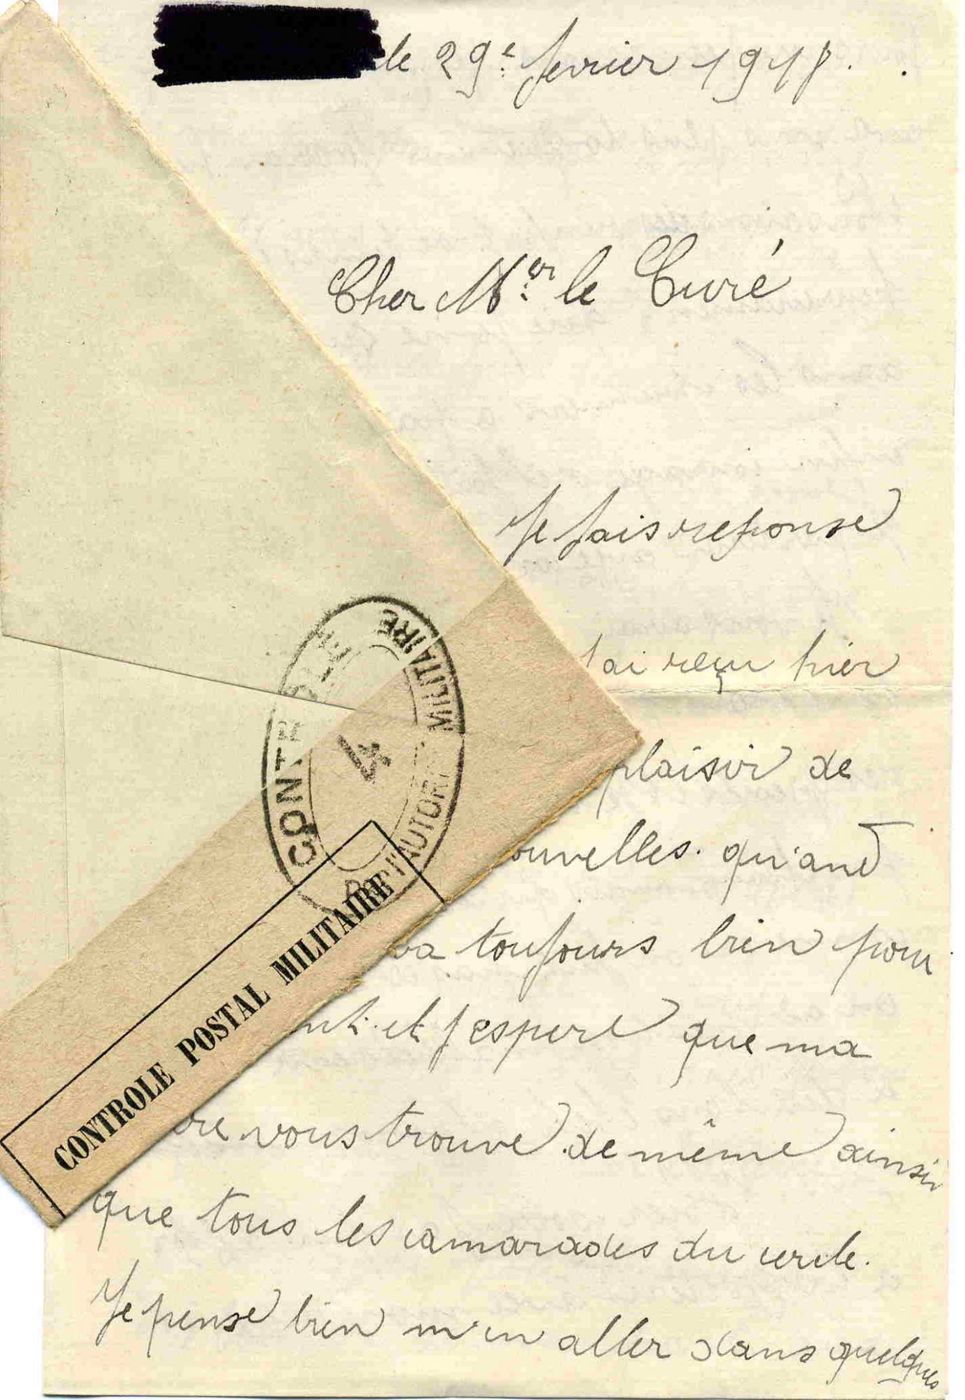 le 29e fevrier 1918.
Cher Mer le Curé
Je fais reponse
ai reçu hier
plaisir de
ouvelles. qu'and
va toujours bien pour
et j'espere que ma
vous trouve de même ainsi
que tous les camarades du cercle.
Je pense bien m'en aller dans quelques
CONTROLE
MILITAIRE
4
CONTROLE POSTAL MILITAIRE